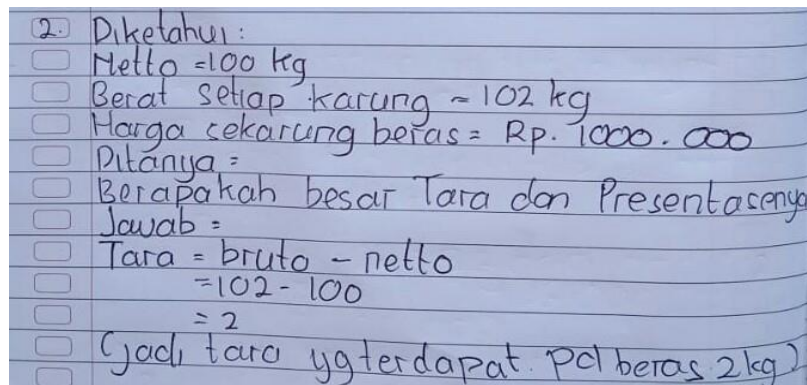 2. Diketahui:
Netto = 100 kg
Berat setiap karung = 102 kg
Harga sekarung beras = Rp. 1000.000
Ditanya =
Berapakah besar Tara dan Presentasenya
Jawab =
Tara = bruto - netto
= 102 - 100
= 2
(jadi tara yg terdapat pd beras 2 kg)